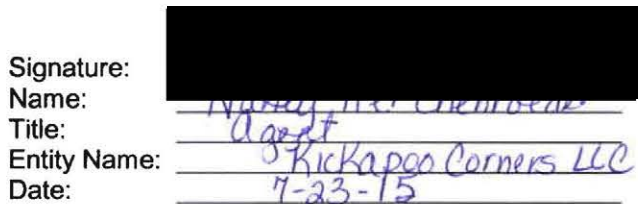 Signature:
Name: Nancy
Title: Agent
Entity Name: Kickapoo Corners LLC
Date: 7-23-15